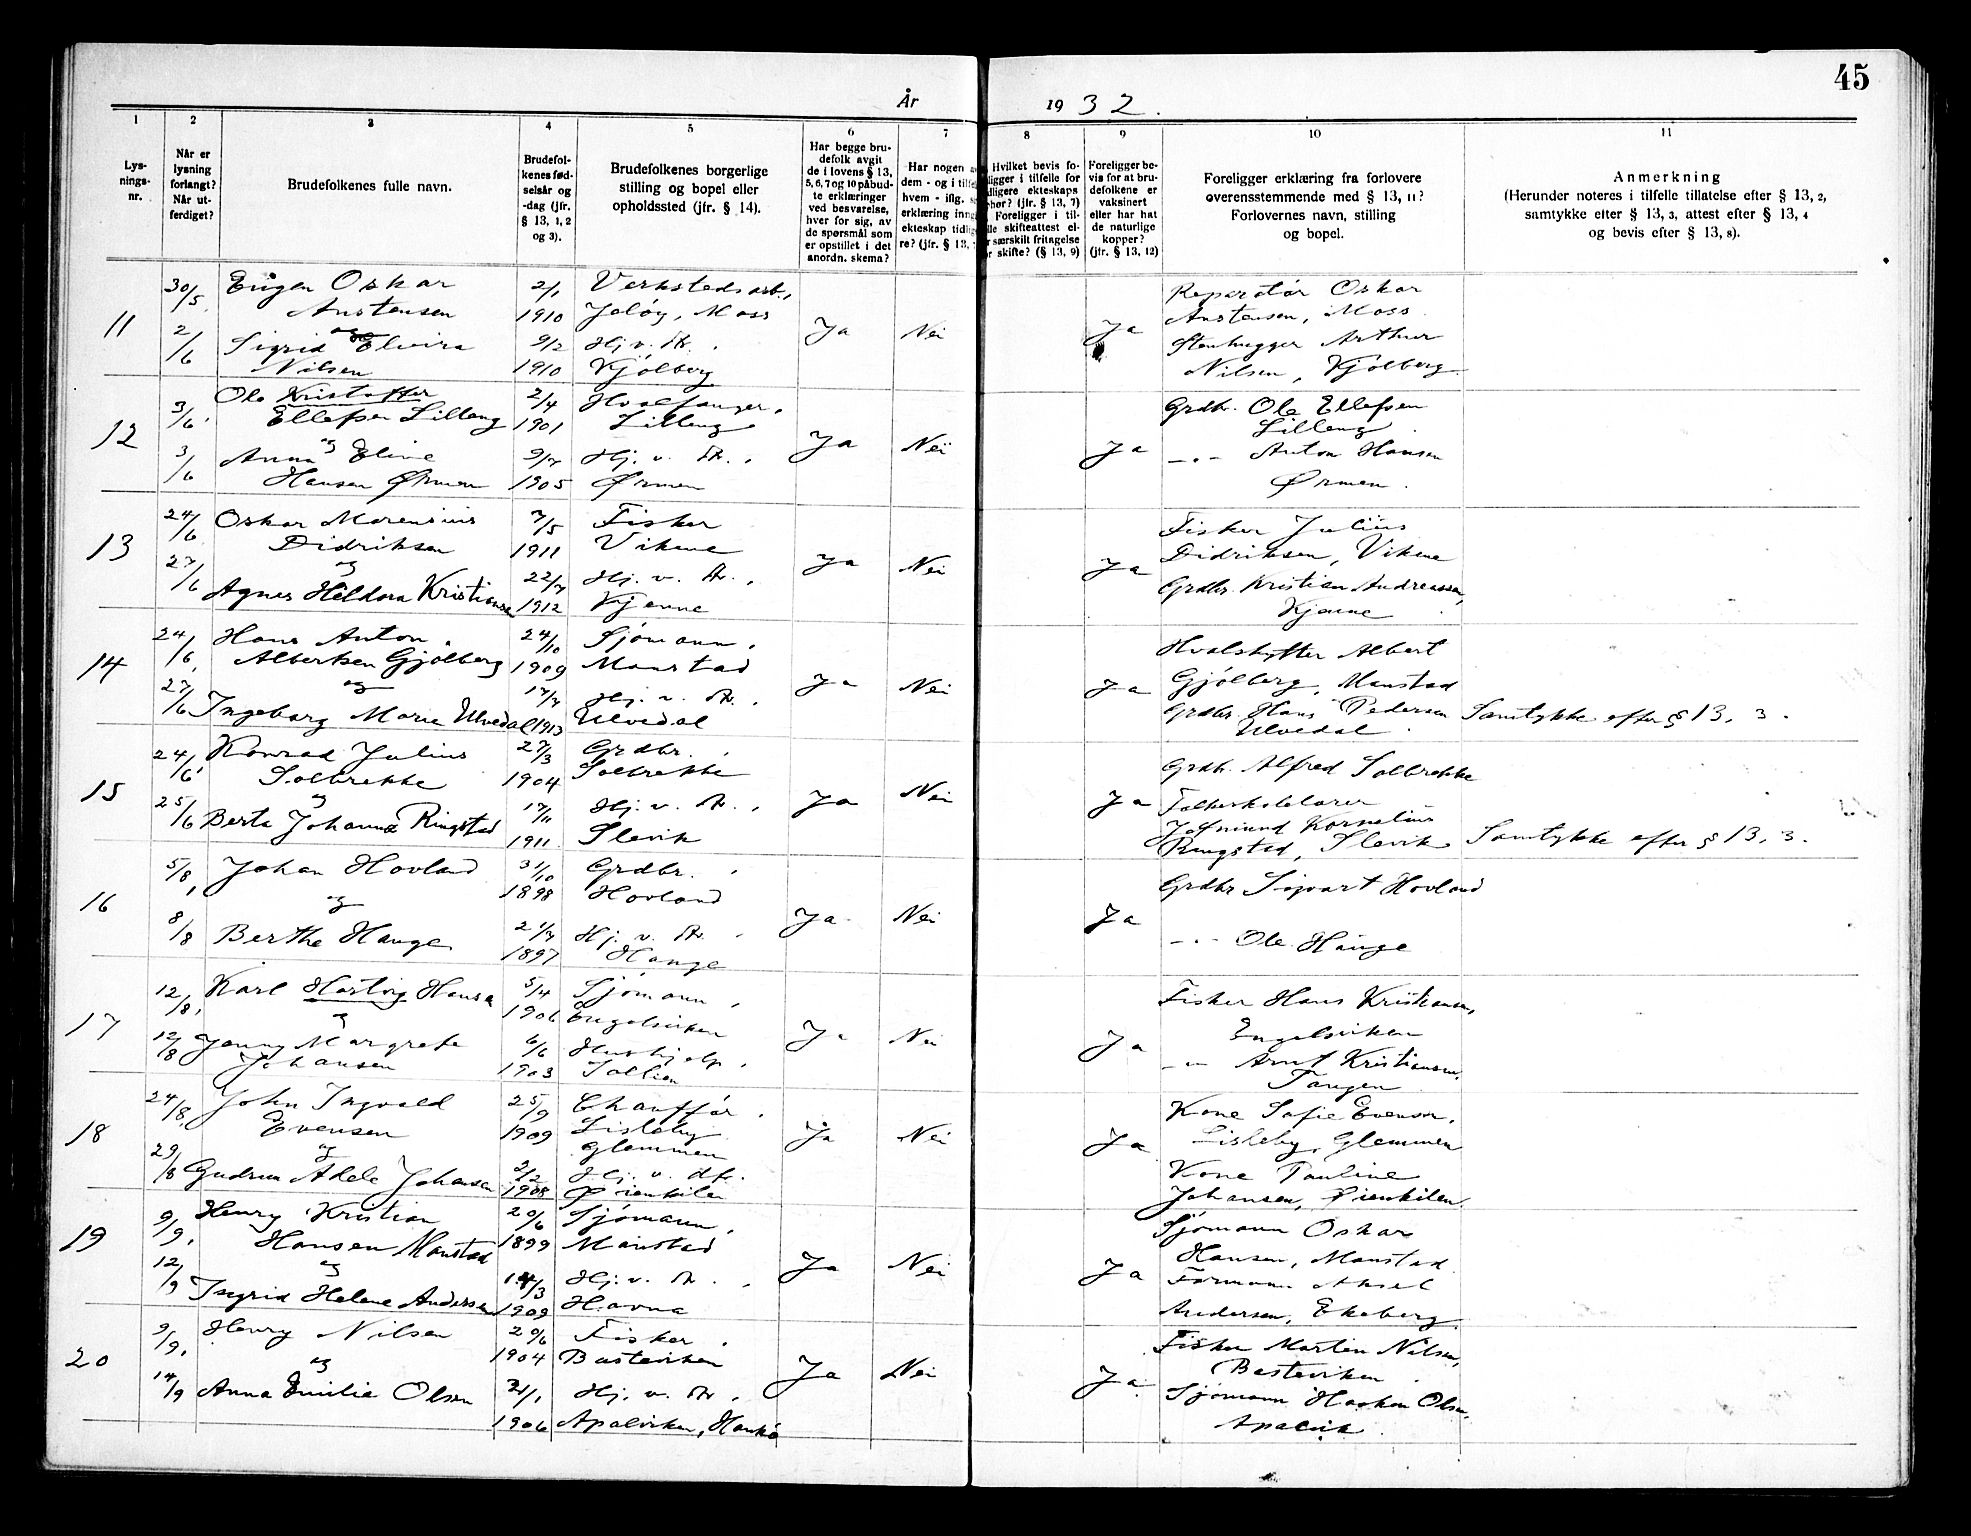 45
År 1932.
1
Lysnings-nr.
2
Når er lysning forlangt? Når utferdiget?
3
Brudefolkenes fulle navn.
4
Brudefolkenes fødselsår og -dag (jfr. § 13, 1, 2 og 3).
5
Brudefolkenes borgerlige stilling og bopel eller opholdssted (jfr. § 14).
6
Har begge brudefolk avgit de i lovens § 13, 5, 6, 7 og 10 påbudte erklæringer ved besvarelse, hver for sig, av de spørsmål som er opstillet i det anordn. skema?
7
Har nogen av dem - og i tilfelle hvem - iflg.
erklæring inngått ekteskap tidligere? (jfr. § 13,
8
Hvilket bevis foreligger i tilfelle for tidligere ekteskaps ophør? (jfr. § 13, 7) Foreligger i tilfelle skifteattest eller særskilt fritagelse for skifte? (§ 13, 9)
9
Foreligger bevis for at brudefolkene er vaksinert eller har hat de naturlige kopper? (jfr. § 13, 12)
10
Foreligger erklæring fra forlovere overensstemmende med § 13, 11?
Forlovernes navn, stilling og bopel.
11
Anmerkning
(Herunder noteres i tilfelle tillatelse efter § 13, 2, samtykke efter § 13, 3, attest efter § 13, 4 og bevis efter § 13, 8).
11
30/5. Eugen Oskar 2/1 Verkstedsarb., Reparatør Oskar
Anstensen 1910 Jeløy, Moss Ja Nei Ja Anstensen, Moss.
2/6 Sigrid og Elvira 9/2 Hj. v. str. Stenhugger Arthur
Nilsen 1910 Kjølberg Nilsen, Kjølberg.
12
3/6. Ole Kristoffer 2/4 Hvalfanger, Grdbr. Ole Ellefsen
Ellefsen Lilleng 1901 Lilleng. Ja Nei Ja Lilleng.
3/6 Anna og Eline 9/7 Hj. v. str., -"- Anton Hansen
Hansen Ørmen 1905 Ørmen Ørmen.
13
24/6 Oskar Marensius 7/5 Fisker Fisker Julius
Didriksen 1911 Vikene Ja Nei Ja Didriksen, Vikene
og
27/6 Agnes Heldora Kristiansen 22/7 1912 Hj. v. str., Kjenne Grdbr. Kristian Andreassen,
Kjenne.
14
24/6. Hans Anton 24/10 Sjømann, Hvalskytter Albert
Albertsen Gjølberg 1909 Manstad Ja Nei Ja Gjølberg, Manstad
og
27/6 Ingeborg Marie Ulvedal 17/7 1913 Hj. v. str., Ulvedal Grdbr. Hans Pedersen Samtykke efter § 13, 3.
Ulvedal.
15
24/6. Konrad Julius 27/3 Grdbr., Grdbr. Alfred Solbrekke
Solbrekke 1904 Solbrekke Ja Nei Ja
og
25/6 Berta Johanna Ringstad 17/11 1911. Hj. v. str., Slevik Folkeskolelærer
Kornelius
Ringstad, Slevik Samtykke efter § 13, 3.
16
5/8, Johan Hovland 31/10 Grdbr., Grdbr Sigvart Hovland
1898 Hovland Ja Nei Ja
og
8/8 Berthe Hauge 21/7 1897 Hj. v. str. Hauge -"- Ole Hauge
17
12/8, Karl Hartvig Hansen 5/4 Sjømann, Fisker Hans Kristiansen,
1906 Engelsviken Ja Nei Ja Engelsviken
og
12/8 Jenny Margrete 6/6 Hushjelp, -"- Arnt Kristiansen,
Johansen 1903 Tangen
18
24/8, John Ingvald 25/9 Chauffør, Kone Sofie Evensen,
Evensen 1909 Lisleby Glemmen Ja Nei Ja Lisleby, Glemmen
og
29/8 Gudrun Adele Johansen 2/12 1908 Hj. v. str. Kone Pauline
Johansen,
19
9/9. Henry Kristian 20/6 Sjømann, Sjømann Oskar
Hansen Manstad 1899 Manstad Ja Nei Ja Hansen, Manstad
og
12/9 Ingrid Helene Andersen 14/3 1909 Hj. v. str., Havna Formann Aksel
Andersen, Ekeberg.
20
9/9. Henry Nilsen 20/6 Fisker, Fisker Martin Nilsen,
1904 Basteviken Ja Nei Ja. Basteviken.
og
14/9 Anna Emilie Olsen 21/1 Hj. v. str., Sjømann Haakon Olsen,
1906 Apalviken, Hankø Apalvik.